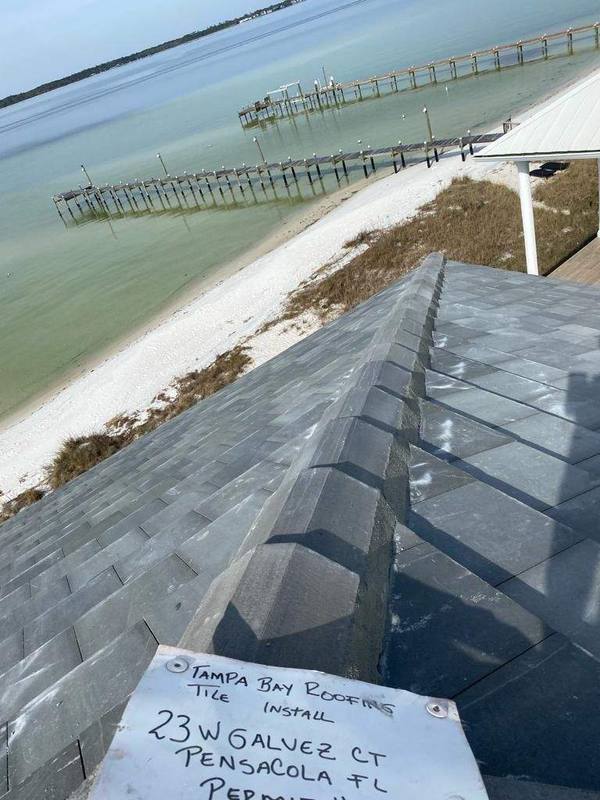 TAMPA BAY ROOFING
TILE INSTALL
23 W GALVEZ CT
PENSACOLA FL